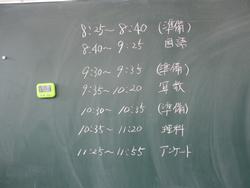 8:25～8:40 (準備)
8:40～9:25 国語
9:30～9:35 (準備)
9:35～10:20 算数
10:30～10:35 (準備)
10:35～11:20 理科
11:25～11:55 アンケート